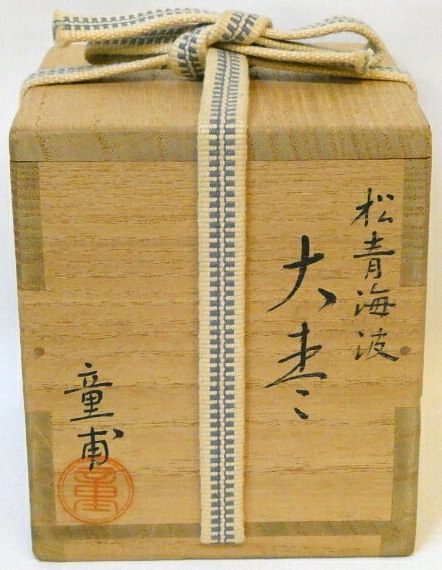 松青海波
大棗
童甫
童